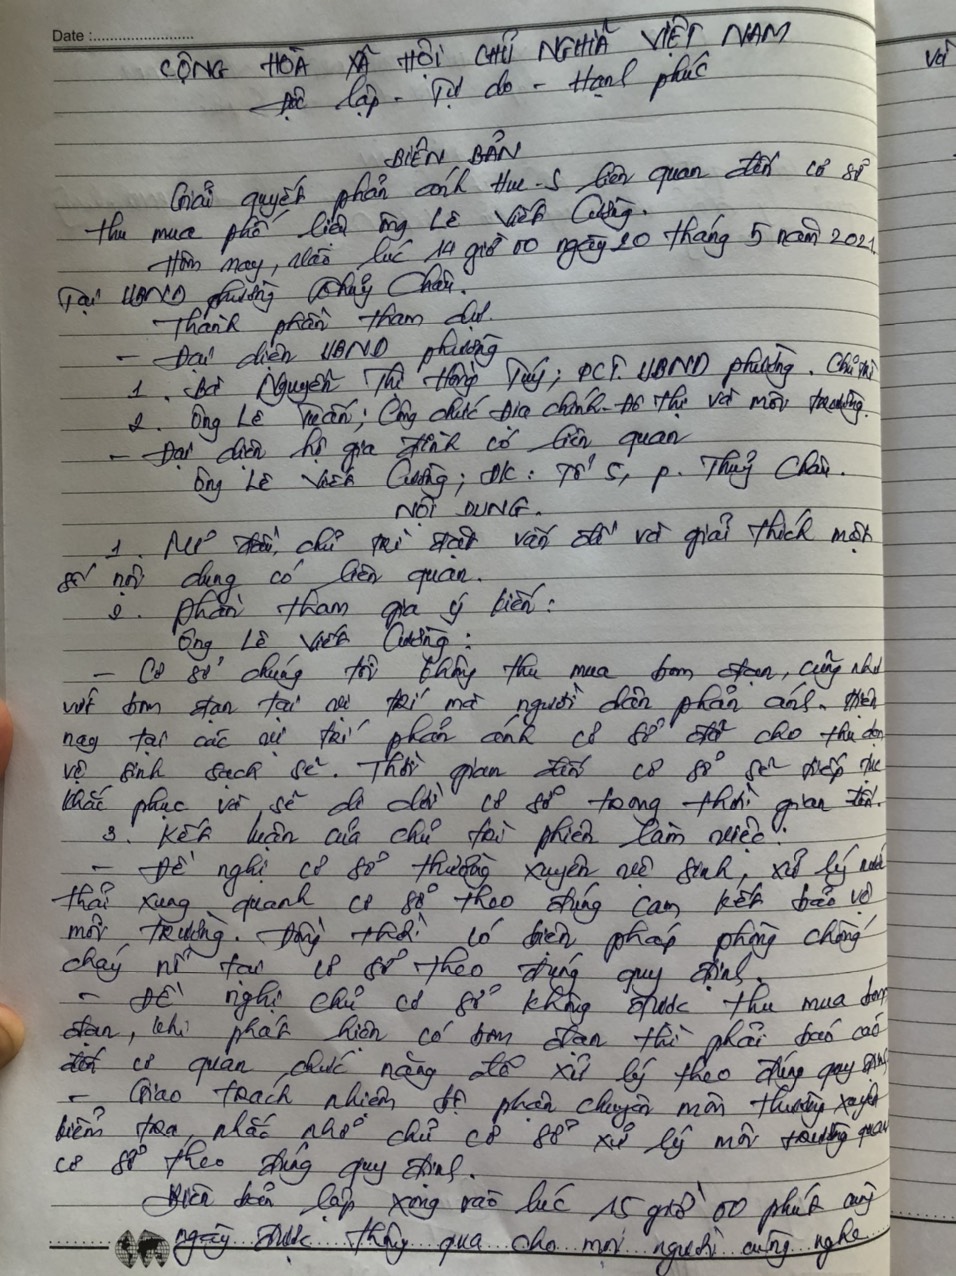 Date :
CỘNG HÒA XÃ HỘI CHỦ NGHĨA VIỆT NAM
Độc lập - Tự do - Hạnh phúc
BIÊN BẢN
Giải quyết phản ánh Hue-S liên quan đến cơ sở
thu mua phế liệu ông Lê Viết Cường.
Hôm nay, vào lúc 14 giờ 00 ngày 20 tháng 5 năm 2021.
Tại UBND phường Thủy Châu.
Thành phần tham dự.
- Đại diện UBND phường
1. Bà Nguyễn Thị Hồng Tuý; PCT. UBND phường. Chủ trì
2. Ông Lê Tuấn; Công chức Địa chính - Đô thị và môi trường.
- Đại diện hộ gia đình có liên quan
Ông Lê Viết Cường; ĐK: Tổ 5, p. Thuỷ Châu.
NỘI DUNG.
1. Mở đầu, chủ trì đặt vấn đề và giải thích một
số nội dung có liên quan.
2. Phần tham gia ý kiến:
Ông Lê Viết Cường:
- Cơ sở chúng tôi không thu mua bom đạn, cũng như
vứt bom đạn tại vị trí mà người dân phản ánh. Hiện
nay tại các vị trí phản ánh cơ sở đã cho thu dọn
vệ sinh sạch sẽ. Thời gian đến cơ sở sẽ tiếp tục
khắc phục và sẽ di dời cơ sở trong thời gian đến.
3. Kết luận của chủ trì phiên làm việc:
- Đề nghị cơ sở thường xuyên vệ sinh, xử lý nước
thải xung quanh cơ sở theo đúng cam kết bảo vệ
môi trường. Đồng thời có biện pháp phòng chống
cháy nổ tại cơ sở theo đúng quy định.
- Đề nghị chủ cơ sở không được thu mua bom
đạn, khi phát hiện có bom đạn thì phải báo cáo
cơ quan chức năng để xử lý theo đúng quy định
- Giao trách nhiệm bộ phận chuyên môn thường xuyên
kiểm tra, nhắc nhở chủ cơ sở xử lý môi trường quanh
cơ sở theo đúng quy định.
Biên bản lập xong vào lúc 15 giờ 00 phút cùng
ngày được thông qua cho mọi người cùng nghe
và